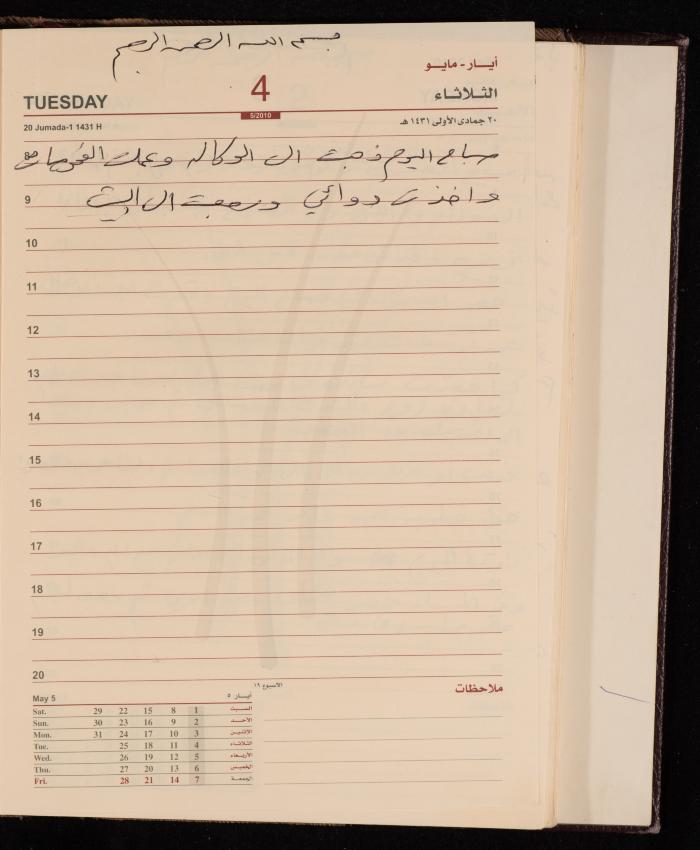 بسم الله الرحمن الرحيم
أيـــار - مايـــو
TUESDAY
4
الثـلاثـاء
5/2010
20 Jumada-1 1431 H
٢٠ جمادى الأولى ١٤٣١ هـ
صباح اليوم ذهبت الى الوكاله وعملت الفحوصات
9
واخذت دوائي ورجعت الى البيت
10
11
12
13
14
15
16
17
18
19
20
May 5
أيـــار ٥
الأسبوع ١٩
ملاحظات
Sat. 29 22 15 8 1 السبت
Sun. 30 23 16 9 2 الأحد
Mon. 31 24 17 10 3 الإثنين
Tue. 25 18 11 4 الثلاثاء
Wed. 26 19 12 5 الأربعاء
Thu. 27 20 13 6 الخميس
Fri. 28 21 14 7 الجمعة